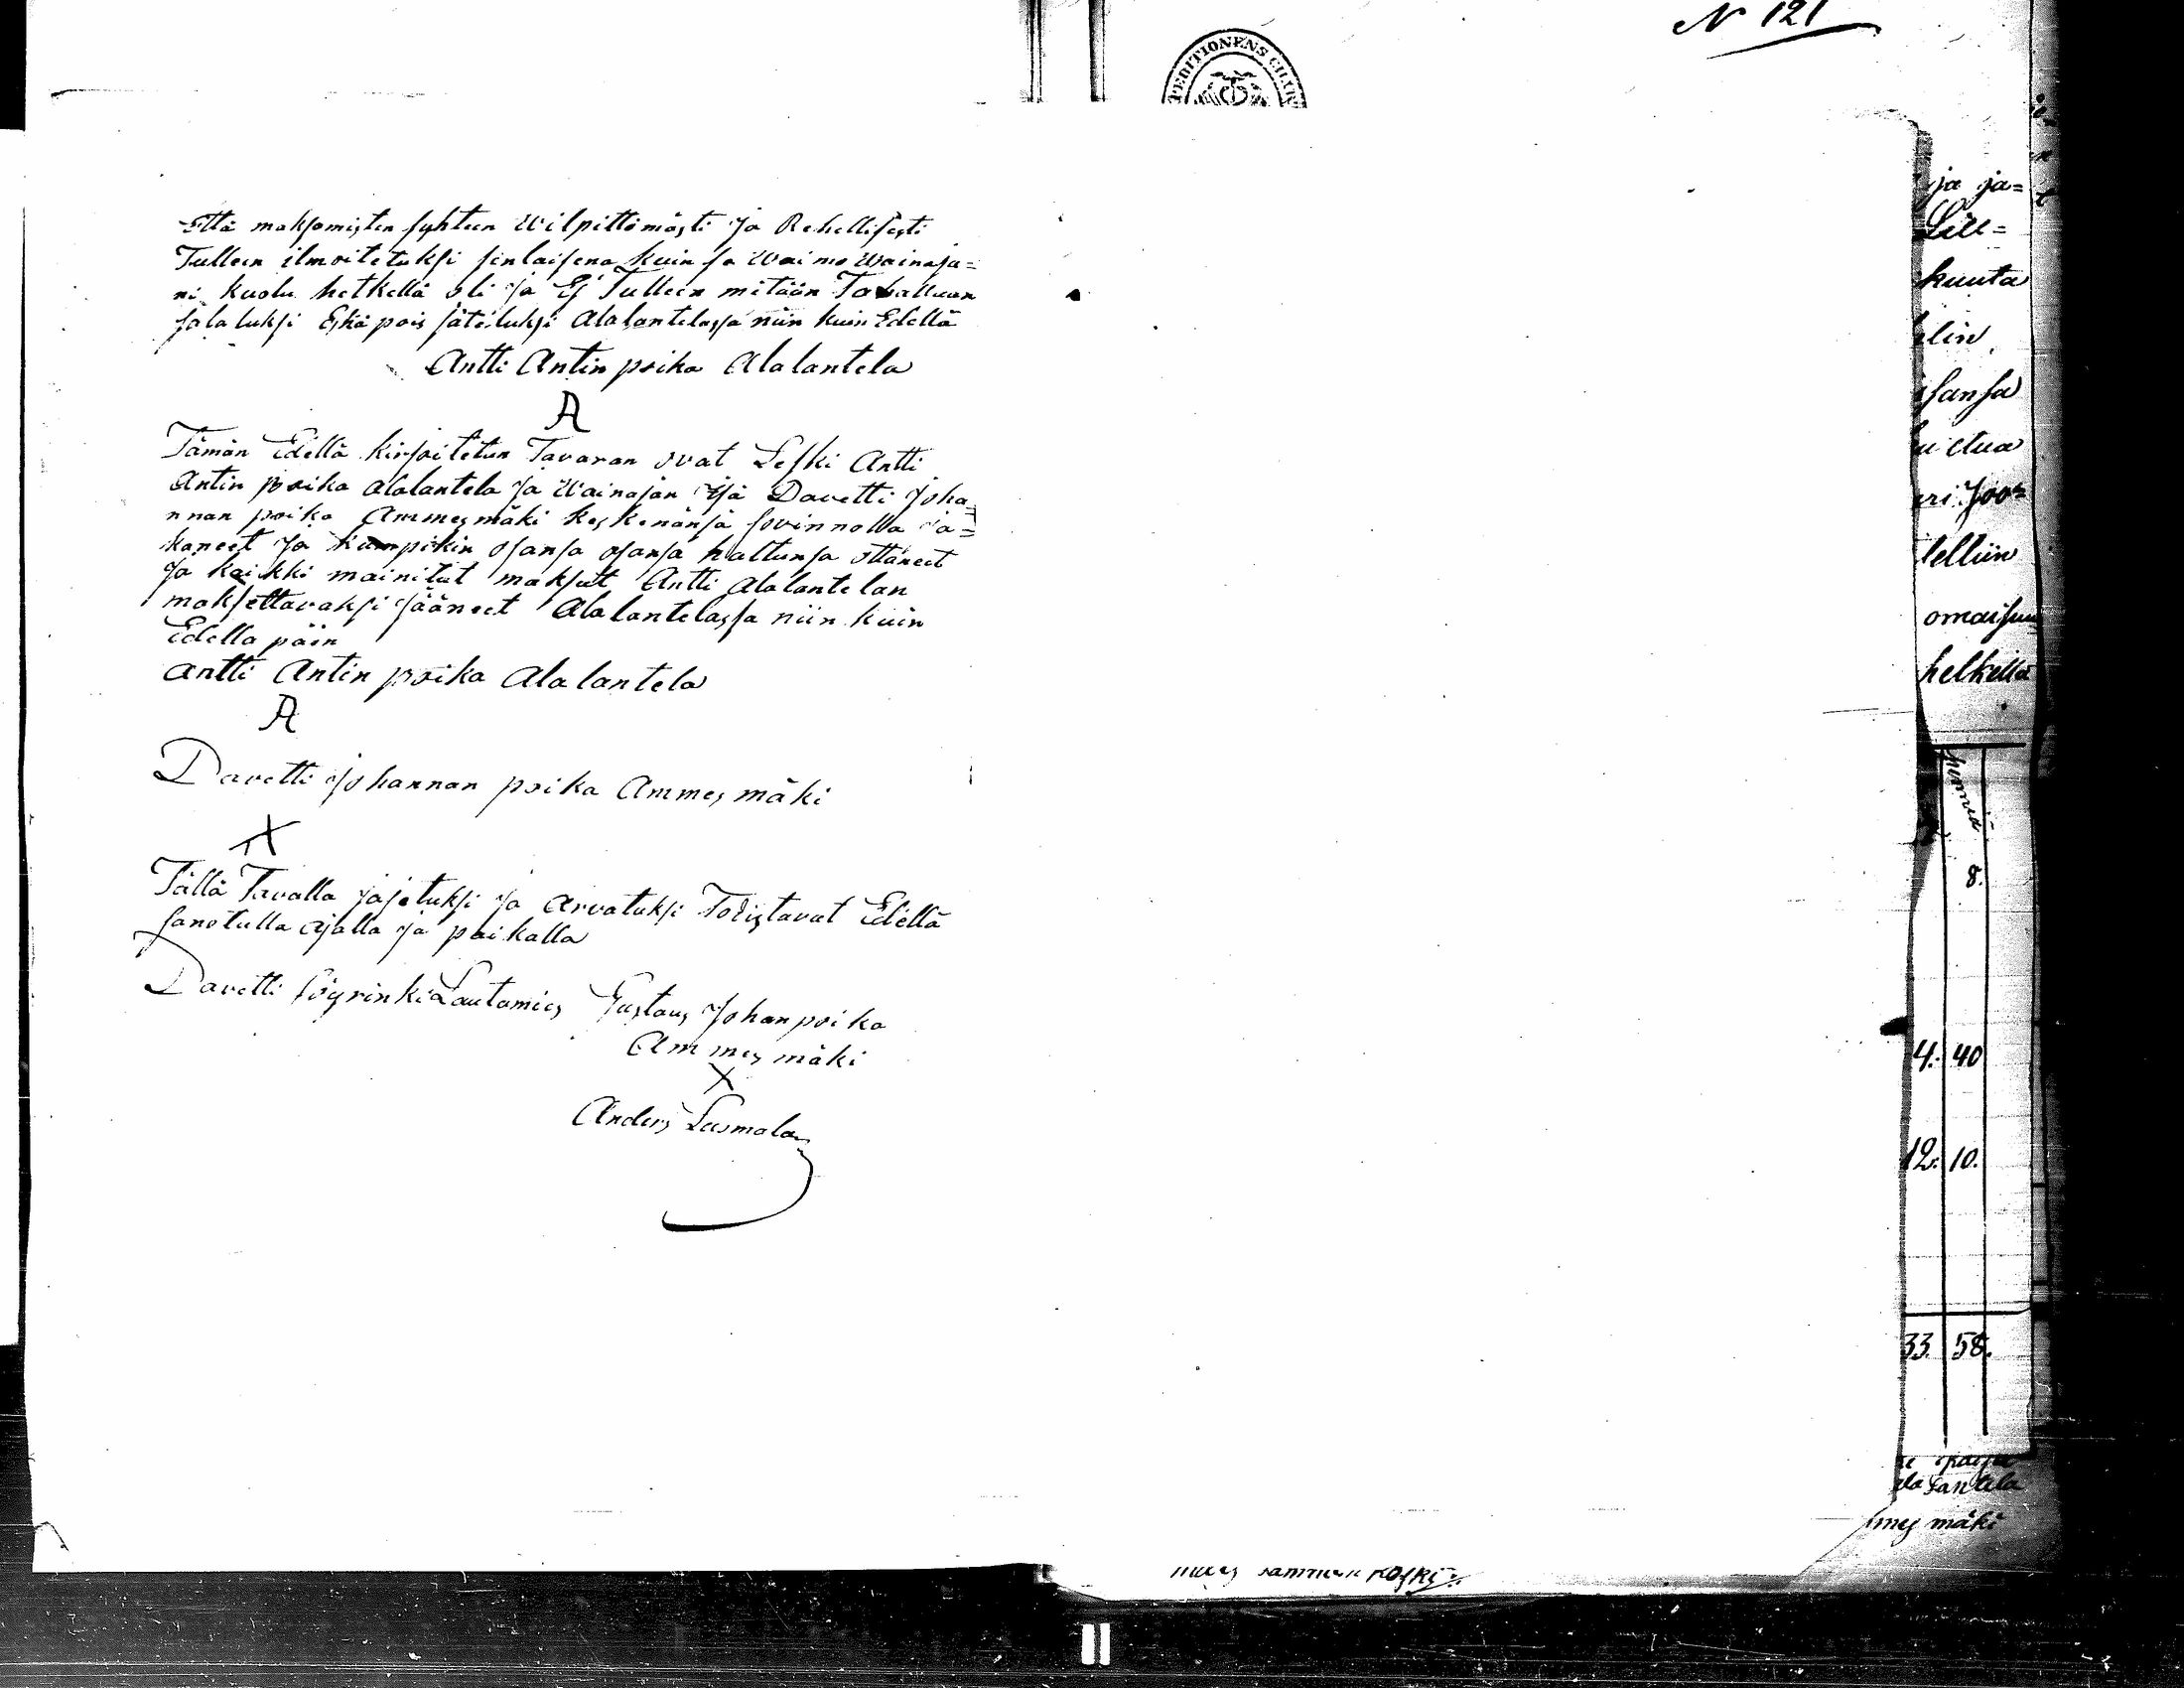 N 121
PEDITIONENS
että maksomisten suhteen Wilpittömästi ja Rehellisesti
Tulleen ilmoitetuksi senlaisena kuin sa Waimo Wainaja=
ni kuolu hetkellä oli ja Ej Tulleen mitään Tavalluan
salatuksi Eikä pois jätetuksi Alalantelassa niin kuin Edellä
Antti Antin poika Alalantela
A
Tämän Edellä kirjoitetun Tavaran ovat Leski Antti
Antin poika Alalantela ja Wainajan Isä Davetti Joha=
nnan poika Ammesmäki keskenänsä sovinnolla ja=
kaneet ja kumpikin osansa osansa haltunsa ottaneet
ja kaikki mainitut maksut Antti Alalantelan
maksettavaksi jääneet Alalantelassa niin kuin
Edellä päin
Antti Antin poika Alalantela
A
Davetti Johannan poika Ammesmäki
X
Tällä Tavalla jajetuksi ja Arvatuksi Todistavat Edellä
sanotulla ajalla ja paikalla
Davetti Löyrinki Lautamies Gustaus Johan poika
Ammesmäki
X
Anders Luomala
ja ja=
kuuta
sansa
telliin
omaisuu
hetkellä
penniä
8.
4. 40
12. 10.
33 58.
Lantela
mes mäki